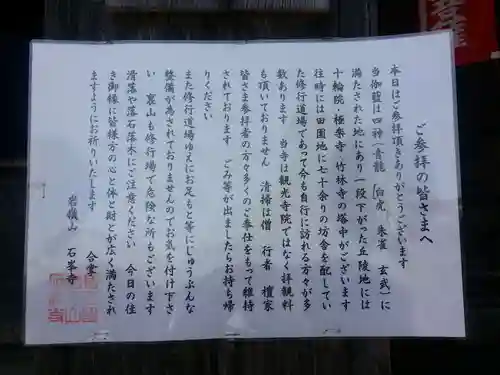 ご参拝の皆さまへ
本日はご参拝頂きありがとうございます
当伽藍は四神（青龍 白虎 朱雀 玄武）に
満たされた地にあり一段下がった丘陵地には
十輪院・極楽寺・竹林寺の塔中がございます
往時には田園地に七十余りの坊舎を配してい
た修行道場であって今も自行に訪れる方々が多
数あります 当寺は観光寺院ではなく拝観料
も頂いておりません 清掃は僧 行者 檀家
皆さま参拝者の方々多くのご奉仕をもって維持
されております ごみ等が出ましたらお持ち帰
りください
また修行道場ゆえにお足もと等にじゅうぶんな
整備が為されておりませんのでお気を付け下さ
い 裏山も修行場で危険な所もございます
滑落や落石落木にご注意ください 今日の佳
き御縁に皆様方の心と体と財とが広く満たされ
ますようにお祈りいたします
合掌
岩嶺山 石峯寺